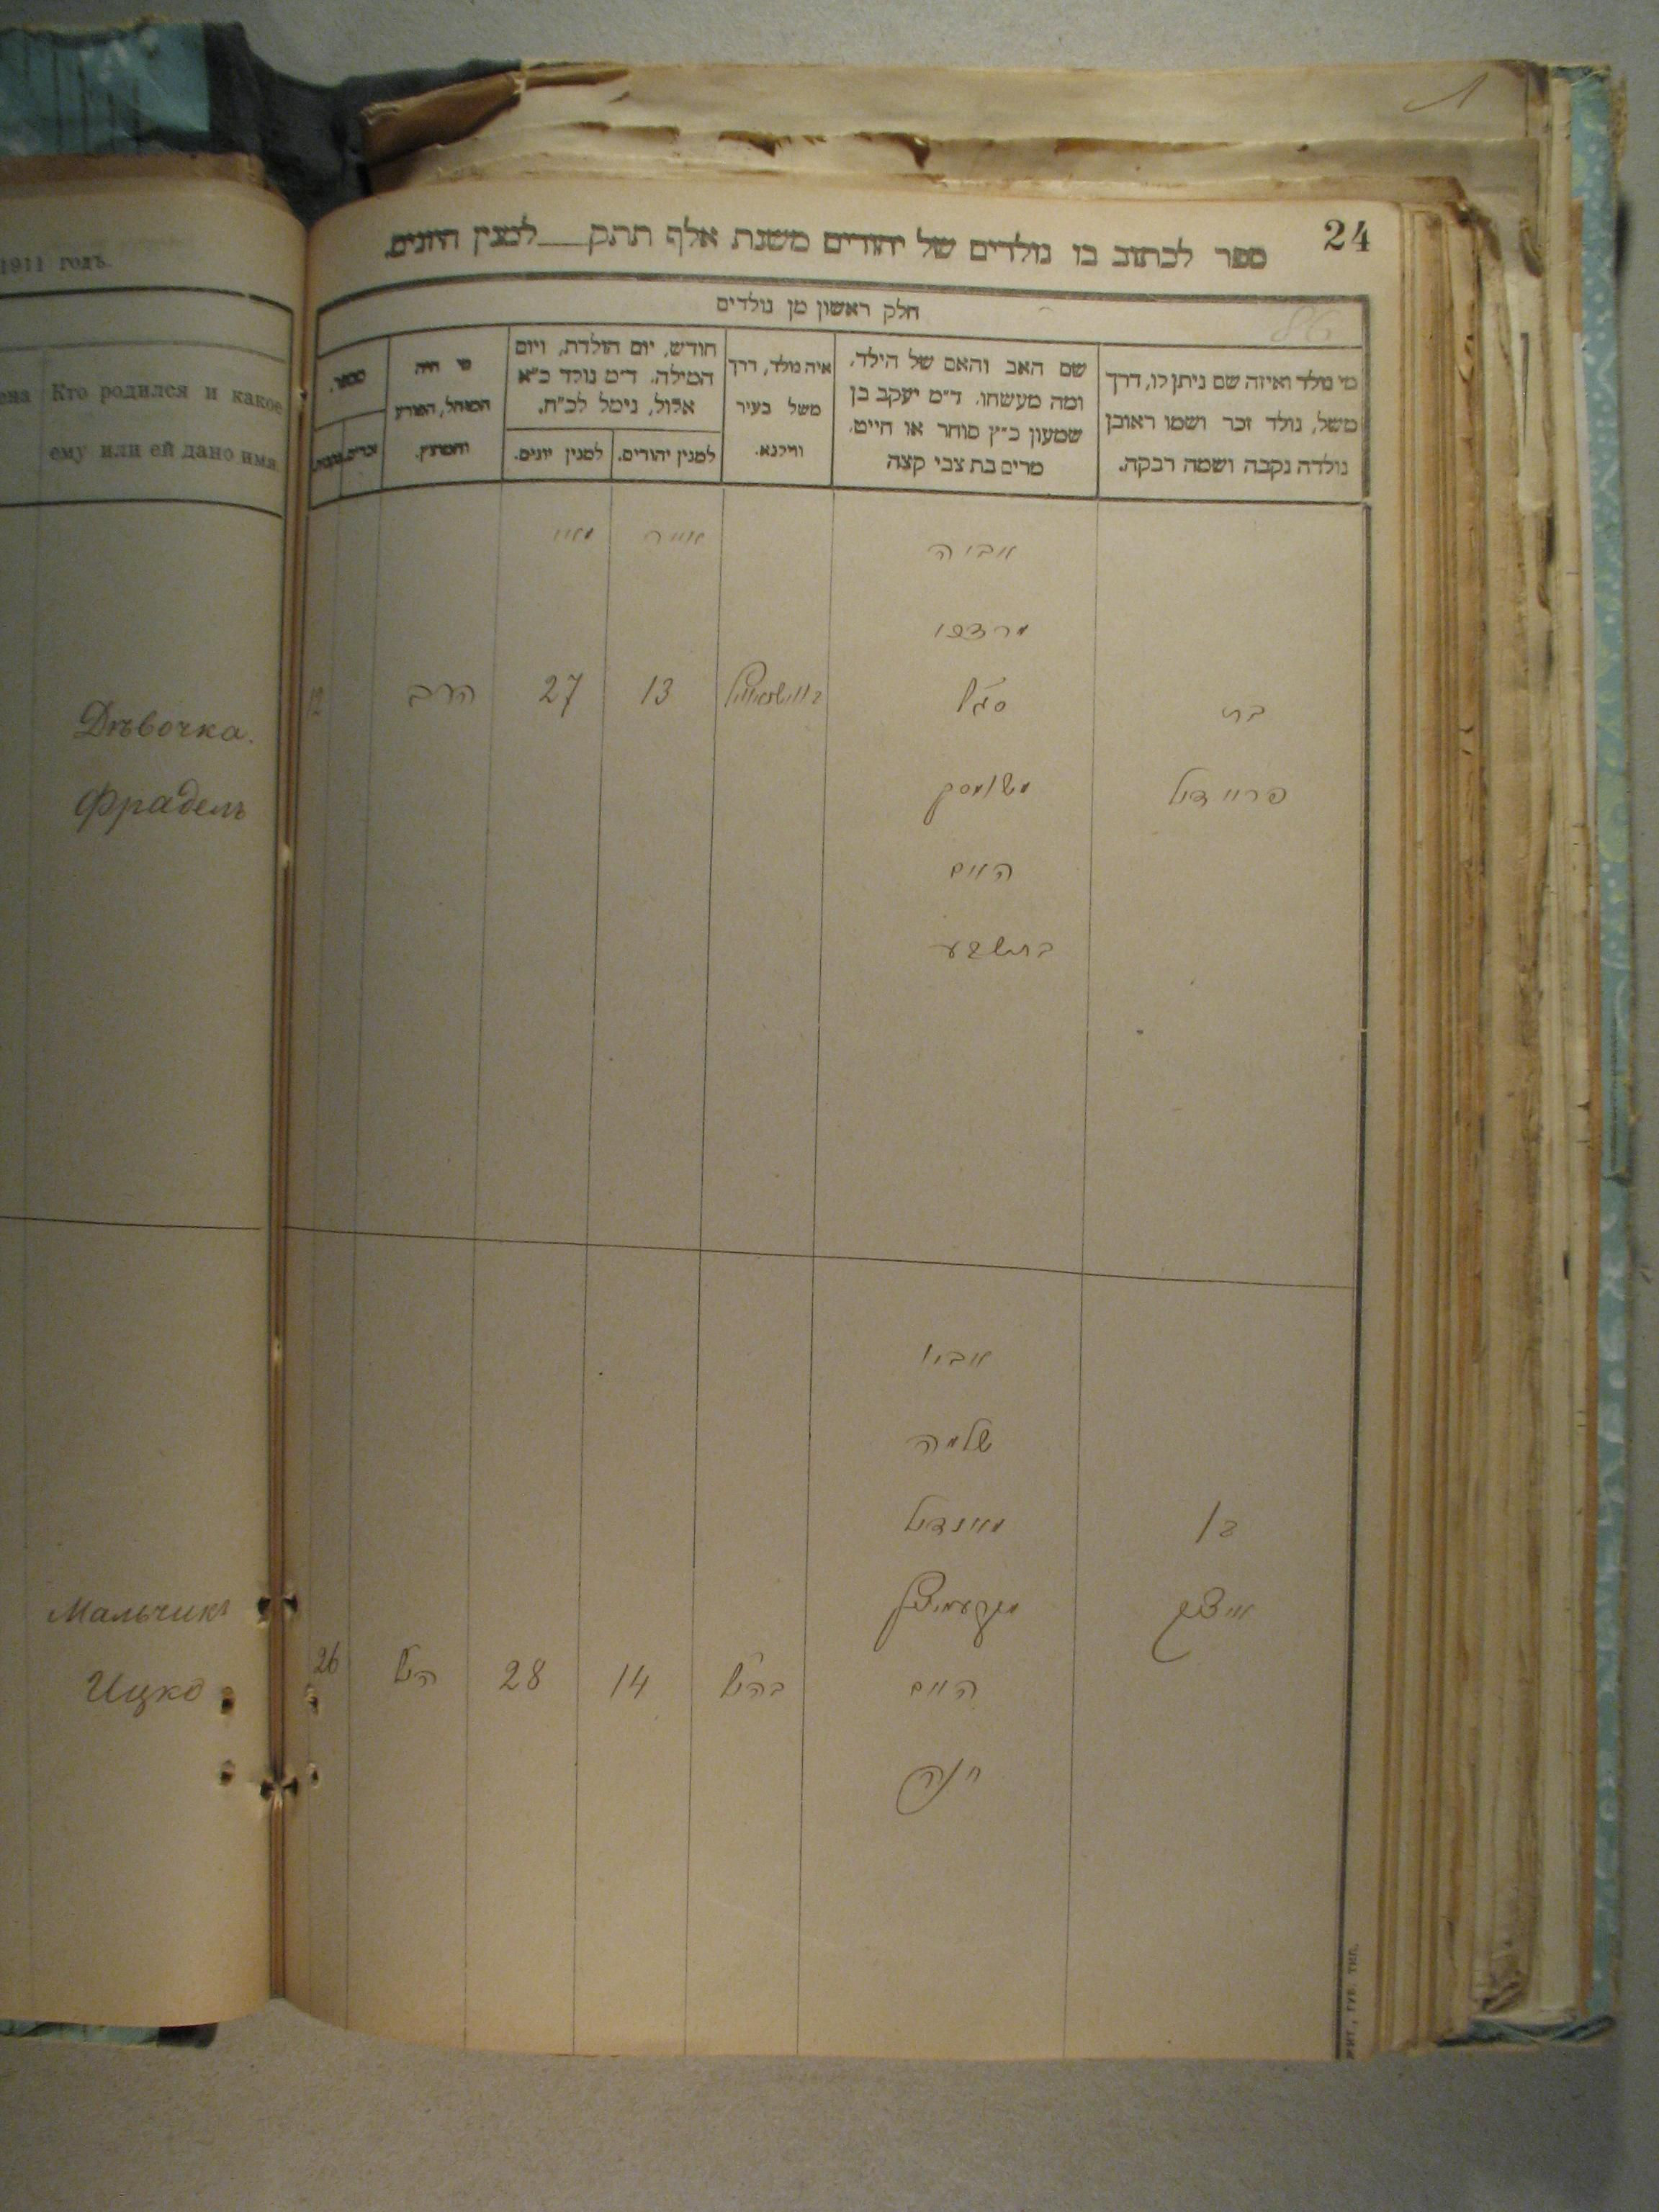 1911 годъ.
Кто родился и какое
ему или ей дано имя
Дѣвочка.
Фрадель
Мальчикъ
Ицко
24
ספר לכתוב בו נולדים של יהודים משנת אלף תתק___למנין היונים.
חלק ראשון מן נולדים
מי נולד ואיזה שם ניתן לו, דרך
משל, נולד זכר ושמו ראובן
נולדה נקבה ושמה רבקה.
שם האב והאם של הילד,
ומה מעשהו. ד״מ יעקב בן
שמעון כ״ץ סוחר או חייט,
מרים בת צבי קצה
איה נולד, דרך
משל בעיר
ווילנא.
חודש, יום הולדת, ויום
המילה. ד״מ נולד כ״א
אלול, נימל לכ״ח.
למנין יהודים.
למנין יונים.
מי היה
המוהל, הפורע
והמוצץ.
מספר.
זכרים
נקבות
אייר
מאי
אביה
מרדכי
סג״ל
13
27
הרב
12
בת
פריידיל
האם
בתשבע
אביו
שלמה
מיינדיל
בן
איצק
האם
14
28
הנ״ל
26
בהנ״ל